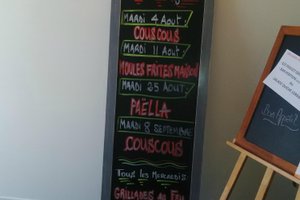 MARDI 4 AOUT:
COUSCOUS
MARDI 11 AOUT:
MOULES FRITES MAISON
MARDI 25 AOUT:
PAËLLA
MARDI 8 SEPTEMBRE
COUSCOUS
TOUS LES MERCREDIS
GRILLADES AU FEU
Bon Appétit